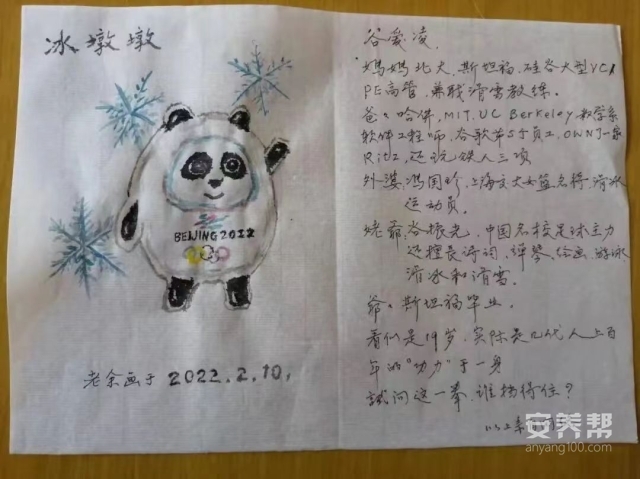 冰墩墩
BEIJING 2022
老余画于 2022.2.10,
谷爱凌,
妈妈北大、斯坦福、硅谷大型VC、
PE高管,兼职滑雪教练。
爸:哈佛,MIT,UC Berkeley 数学系
软件工程师,谷歌第5号员工,OWN了一家
Ritz,还玩铁人三项
外婆,冯国珍,上海交大女篮名将,滑冰
运动员。
姥爷谷振光,中国名校足球主力
还擅长诗词、弹琴、绘画、游泳
滑冰和滑雪。
爷:斯坦福毕业。
看似是19岁,实际是几代人上百
年的"功力"于一身
試问这一拳,谁挡得住?
以上来自网
安养帮
anyang100.com